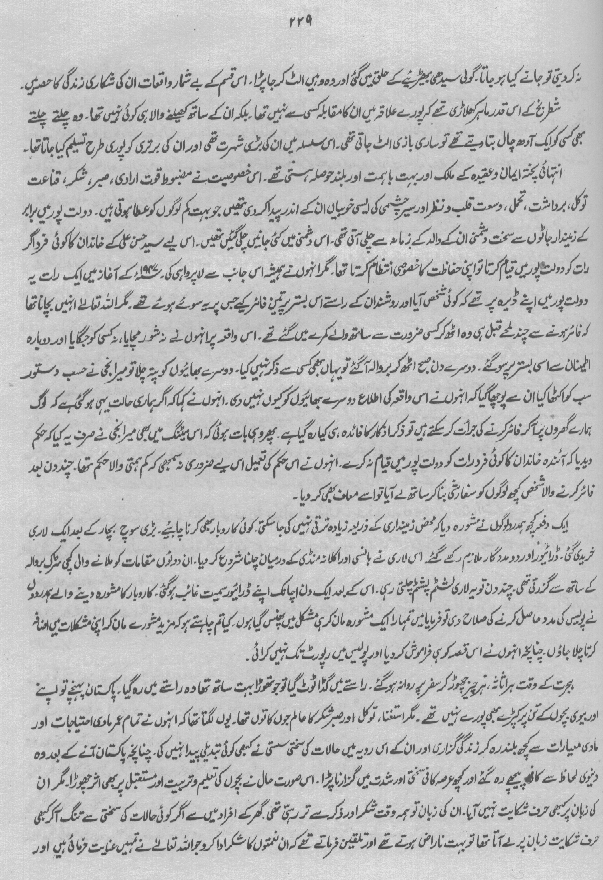 ۲۲۹
نہ کر دی تو جانے کیا ہو جاتا۔ گولی سیدھی بھیڑیئے کے حلق میں گئی اور وہ وہیں الٹ کر جا پڑا۔ اس قسم کے بے شمار واقعات ان کی شکاری زندگی کا حصہ ہیں۔
شطرنج کے اس قدر ماہر کھلاڑی تھے کہ پورے علاقہ میں ان کا مقابلہ کسی سے نہیں تھا۔ بلکہ ان کے ساتھ کھیلنے والا ہی کوئی نہیں تھا۔ وہ چلتے چلتے
بھی کسی کو ایک آدھ چال بتا دیتے تھے تو ساری بازی الٹ جاتی تھی۔ اس سلسلہ میں ان کی بڑی شہرت تھی اور ان کی برتری کو پوری طرح تسلیم کیا جاتا تھا۔
انتہائی پختہ ایمان و عقیدہ کے مالک اور بہت با ہمت اور بلند حوصلہ ہستی تھے۔ اس خصوصیت نے مضبوط قوت ارادی، صبر، شکر، قناعت
توکل، برداشت، تحمل، وسعت قلب و نظر اور سیر چشمی کی ایسی خوبیاں ان کے اندر پیدا کر دی تھیں جو بہت کم لوگوں کو عطا ہوتی ہیں۔ دولت پور میں برابر
کے زمیندار جاٹوں سے سخت دشمنی ان کے والد کے زمانہ سے چلی آتی تھی۔ اس دشمنی میں کئی جانیں چلی گئیں تھیں۔ اس لیے سید حسن علی کے خاندان کا کوئی فرد اگر
رات کو دولت پور میں قیام کرتا تو اپنی حفاظت کا خصوصی انتظام کرتا تھا۔ مگر انہوں نے ہمیشہ اس جانب سے لاپرواہی کی۔ کے آغاز میں ایک رات یہ
دولت پور میں اپنے ڈیرہ پر تھے کہ کوئی شخص آیا اور روشندان کے راستے اس بستر پر تین فائر کئے جس پر یہ سوئے ہوئے تھے۔ مگر اللہ تعالےٰ انہیں بچانا تھا
کہ فائر ہونے سے چند لمحے قبل ہی وہ اٹھ کر کسی ضرورت سے ساتھ والے کمرے میں گئے تھے۔ اس واقعہ پر انہوں نے نہ شور مچایا، نہ کسی کو جگایا اور دوبارہ
اطمینان سے اسی بستر پر سو گئے۔ دوسرے دن صبح اٹھ کر پروالہ آ گئے تو یہاں بھی کسی سے ذکر نہیں کیا۔ دوسرے بھائیوں کو پتہ چلا تو میرا نجی نے حسب دستور
سب کو اکٹھا کیا ان سے پوچھا گیا کہ انہوں نے اس واقعہ کی اطلاع دوسرے بھائیوں کو کیوں نہیں دی۔ انہوں نے کہا کہ اگر ہماری حالت یہی ہو گئی ہے کہ لوگ
ہمارے گھروں میں آ کر فائر کرنے کی جرأت کر سکتے ہیں تو ذکر اذکار کا فائدہ ہی کیا رہ گیا ہے۔ پھر وہی بات ہوئی کہ اس میٹنگ میں بھی میرا نجی نے صرف یہ کیا کہ حکم
دیدیا کہ آئندہ خاندان کا کوئی فرد رات کو دولت پور میں قیام نہ کرے۔ انہوں نے اس حکم کی تعمیل اس لیے ضروری نہ سمجھی کہ کم ہمتی والا حکم تھا۔ چند دن بعد
فائر کرنے والا شخص کچھ لوگوں کو سفارشی بنا کر ساتھ لے آیا تو اسے معاف بھی کر دیا۔
ایک دفعہ کچھ ہمدرد لوگوں نے مشورہ دیا کہ محض زمینداری کے ذریعہ زیادہ ترقی نہیں کی جا سکتی کوئی کاروبار بھی کرنا چاہیے۔ بڑی سوچ بچار کے بعد ایک لاری
خریدی گئی۔ ڈرائیور اور دو مددگار ملازم رکھے گئے۔ اس لاری نے ہانسی اور اکلانہ منڈی کے درمیان چلنا شروع کر دیا۔ ان دونوں مقامات کو ملانے والی کچی سڑک پروالہ
کے ساتھ سے گزرتی تھی۔ چند دن تو یہ لاری لشٹم پشٹم چلتی رہی۔ اس کے بعد ایک دن اچانک اپنے ڈرائیور سمیت غائب ہو گئی۔ کاروبار کا مشورہ دینے والے ہمدردوں
نے پولیس کی مدد حاصل کرنے کی صلاح دی تو فرمایا میں تمہارا ایک مشورہ مان کر ہی مشکل میں پھنس گیا ہوں۔ کیا تم چاہتے ہو کہ مزید مشورے مان کر اپنی مشکلات میں اضافہ
کرتا چلا جاؤں۔ چنانچہ انہوں نے اس قصہ کو ہی فراموش کر دیا اور پولیس میں رپورٹ تک نہیں کرائی۔
ہجرت کے وقت ہر اثاثہ، ہر چیز چھوڑ کر سفر پر روانہ ہو گئے۔ راستے میں گڈا ٹوٹ گیا تو جو تھوڑا بہت ساتھ تھا وہ راستے میں رہ گیا۔ پاکستان پہنچے تو اپنے
اور بیوی بچوں کے تن پر کپڑے بھی پورے نہیں تھے۔ مگر استغنا، توکل اور صبر شکر کا عالم جوں کا توں تھا۔ یوں لگتا تھا کہ انہوں نے تمام عمر مادی احتیاجات اور
مادی معیارات سے کچھ بلند رہ کر زندگی گزاری اور ان کے اس رویہ میں حالات کی سختی سستی نے کبھی کوئی تبدیلی پیدا نہیں کی۔ چنانچہ پاکستان آنے کے بعد وہ
دنیوی لحاظ سے کافی پیچھے رہ گئے اور کچھ عرصہ کافی سختی اور شدت میں گزارنا پڑا۔ اس صورت حال نے بچوں کی تعلیم و تربیت اور مستقبل پر بھی اثر چھوڑا۔ مگر ان
کی زبان پر کبھی حرف شکایت نہیں آیا۔ ان کی زبان تو ہمہ وقت شکر اور ذکر سے تر رہتی تھی۔ گھر کے افراد میں سے اگر کوئی حالات کی سختی سے تنگ آ کر کبھی
حرف شکایت زبان پر لے آتا تھا تو بہت ناراض ہوتے تھے اور تلقین فرماتے تھے کہ ان نعمتوں کا شکر ادا کرو جو اللہ تعالےٰ نے تمہیں عنایت فرمائی ہیں اور